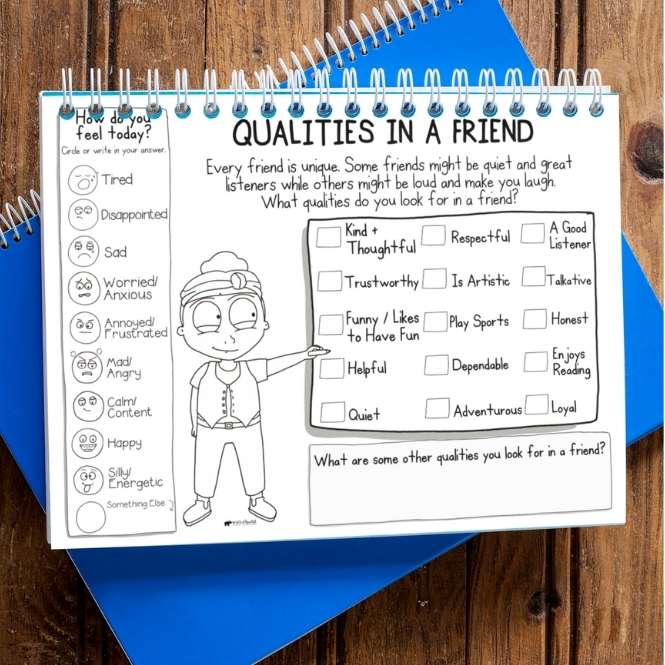 How do you
feel today?
Circle or write in your answer.
Tired
Disappointed
Sad
Worried/
Anxious
Annoyed/
Frustrated
Mad/
Angry
Calm/
Content
Happy
Silly/
Energetic
Something Else
QUALITIES IN A FRIEND
Every friend is unique. Some friends might be quiet and great
listeners while others might be loud and make you laugh.
What qualities do you look for in a friend?
Kind +
Thoughtful
Respectful
A Good
Listener
Trustworthy
Is Artistic
Talkative
Funny / Likes
to Have Fun
Play Sports
Honest
Helpful
Dependable
Enjoys
Reading
Quiet
Adventurous
Loyal
What are some other qualities you look for in a friend?